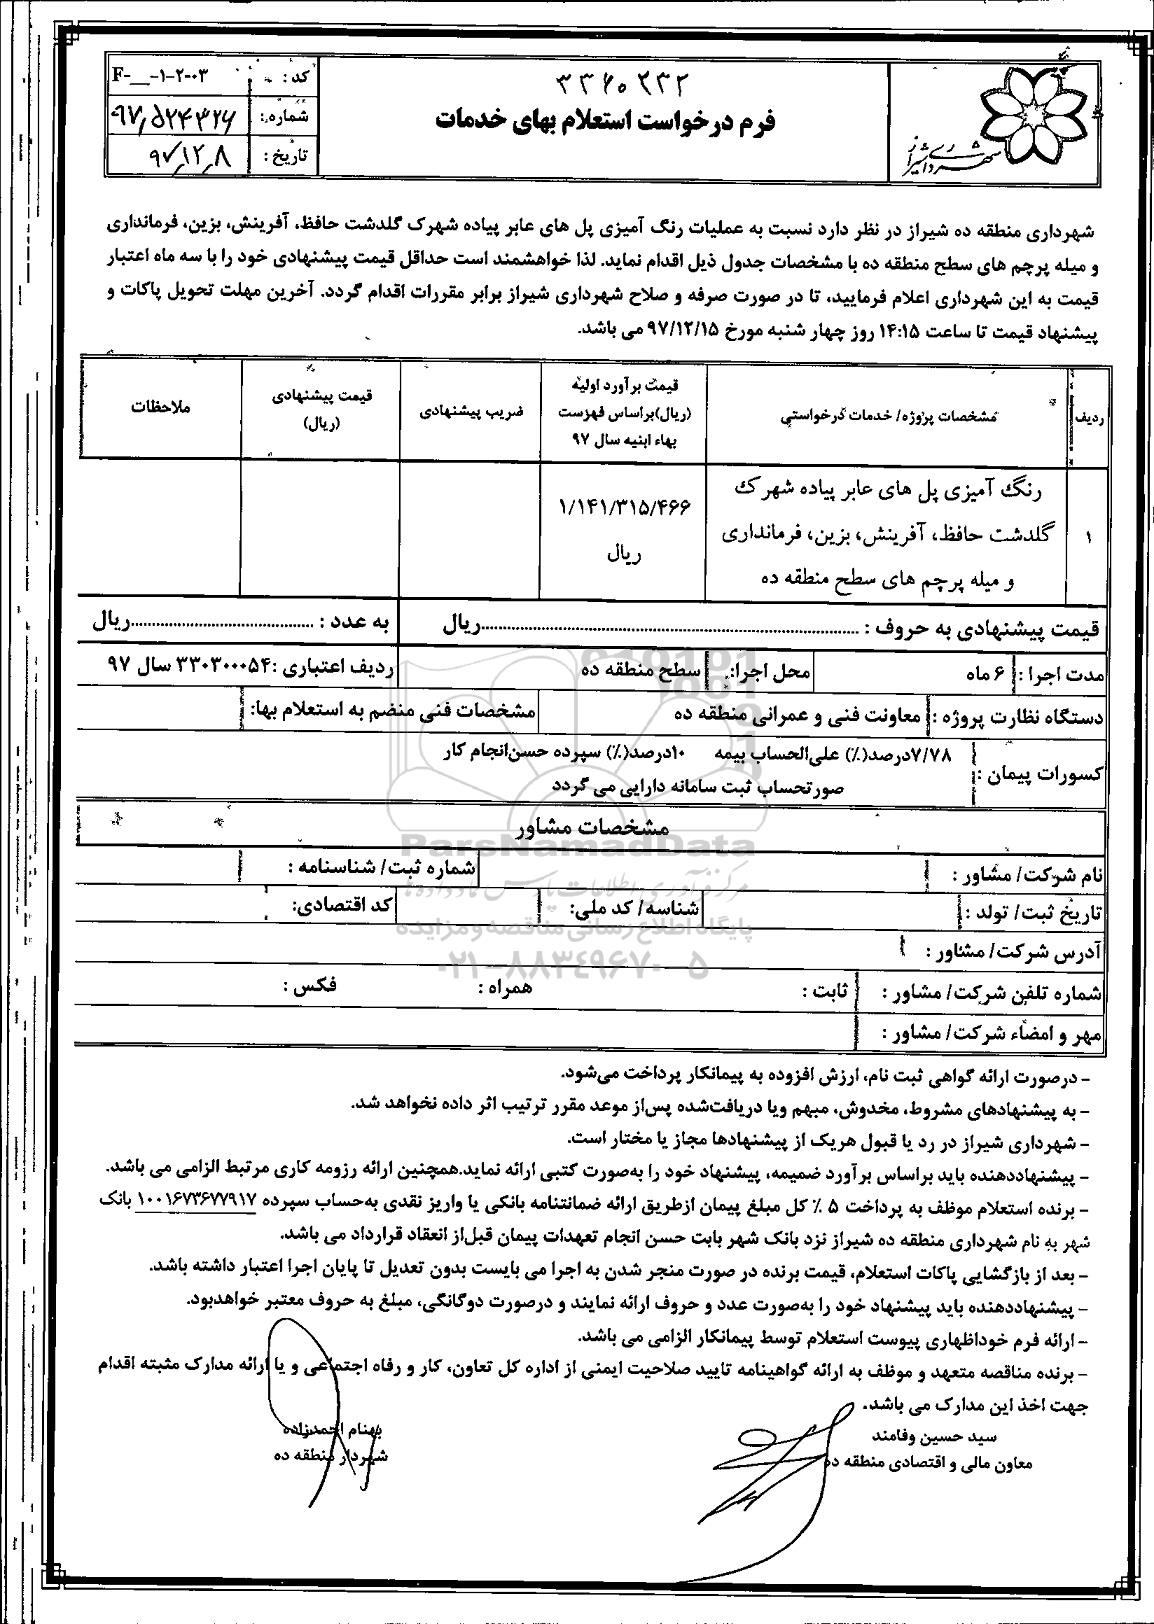 ۳۳۶۰۲۳۲
فرم درخواست استعلام بهای خدمات
شهرداری شیراز
کد: F-__-۱-۲-۰۳
شماره: ۹۷٫۵۲۴۳۲۶
تاریخ: ۹۷٫۱۲٫۸
شهرداری منطقه ده شیراز در نظر دارد نسبت به عملیات رنگ آمیزی پل های عابر پیاده شهرک گلدشت حافظ، آفرینش، بزین، فرمانداری
و میله پرچم های سطح منطقه ده با مشخصات جدول ذیل اقدام نماید. لذا خواهشمند است حداقل قیمت پیشنهادی خود را با سه ماه اعتبار
قیمت به این شهرداری اعلام فرمایید، تا در صورت صرفه و صلاح شهرداری شیراز برابر مقررات اقدام گردد. آخرین مهلت تحویل پاکات و
پیشنهاد قیمت تا ساعت ۱۴:۱۵ روز چهار شنبه مورخ ۹۷/۱۲/۱۵ می باشد.
ردیف
مشخصات پروژه/ خدمات درخواستی
قیمت برآورد اولیه
(ریال)براساس فهرست
بهاء ابنیه سال ۹۷
ضریب پیشنهادی
قیمت پیشنهادی
(ریال)
ملاحظات
۱
رنگ آمیزی پل های عابر پیاده شهرک
گلدشت حافظ، آفرینش، بزین، فرمانداری
و میله پرچم های سطح منطقه ده
۱/۱۴۱/۳۱۵/۴۶۶
ریال
قیمت پیشنهادی به حروف : ....................ریال
به عدد : ....................ریال
مدت اجرا : ۶ ماه
محل اجرا: سطح منطقه ده
ردیف اعتباری :۳۳۰۳۰۰۰۵۴ سال ۹۷
دستگاه نظارت پروژه : معاونت فنی و عمرانی منطقه ده
مشخصات فنی منضم به استعلام بها:
کسورات پیمان :
۷/۷۸درصد(٪) علی‌الحساب بیمه ۱۰درصد(٪) سپرده حسن‌انجام کار
صورتحساب ثبت سامانه دارایی می گردد
مشخصات مشاور
نام شرکت/ مشاور :
شماره ثبت/ شناسنامه :
تاریخ ثبت/ تولد :
شناسه/ کد ملی:
کد اقتصادی:
آدرس شرکت/ مشاور :
شماره تلفن شرکت/ مشاور :
ثابت :
همراه :
فکس :
مهر و امضاء شرکت/ مشاور :
ParsNamadData
پایگاه اطلاع رسانی مناقصه و مزایده
۰۲۱-۸۸۳۴۹۶۷۰-۵
- درصورت ارائه گواهی ثبت نام، ارزش افزوده به پیمانکار پرداخت می‌شود.
- به پیشنهادهای مشروط، مخدوش، مبهم ویا دریافت‌شده پس‌از موعد مقرر ترتیب اثر داده نخواهد شد.
- شهرداری شیراز در رد یا قبول هریک از پیشنهادها مجاز یا مختار است.
- پیشنهاددهنده باید براساس برآورد ضمیمه، پیشنهاد خود را به‌صورت کتبی ارائه نماید.همچنین ارائه رزومه کاری مرتبط الزامی می باشد.
- برنده استعلام موظف به پرداخت ۵ ٪ کل مبلغ پیمان ازطریق ارائه ضمانتنامه بانکی یا واریز نقدی به‌حساب سپرده ۱۰۰۱۶۷۳۶۷۷۹۱۷ بانک
شهر به نام شهرداری منطقه ده شیراز نزد بانک شهر بابت حسن انجام تعهدات پیمان قبل‌از انعقاد قرارداد می باشد.
- بعد از بازگشایی پاکات استعلام، قیمت برنده در صورت منجر شدن به اجرا می بایست بدون تعدیل تا پایان اجرا اعتبار داشته باشد.
- پیشنهاددهنده باید پیشنهاد خود را به‌صورت عدد و حروف ارائه نمایند و درصورت دوگانگی، مبلغ به حروف معتبر خواهدبود.
- ارائه فرم خوداظهاری پیوست استعلام توسط پیمانکار الزامی می باشد.
- برنده مناقصه متعهد و موظف به ارائه گواهینامه تایید صلاحیت ایمنی از اداره کل تعاون، کار و رفاه اجتماعی و یا ارائه مدارک مثبته اقدام
جهت اخذ این مدارک می باشد.
سید حسین وفامند
معاون مالی و اقتصادی منطقه ده
بهنام احمدزاده
شهردار منطقه ده